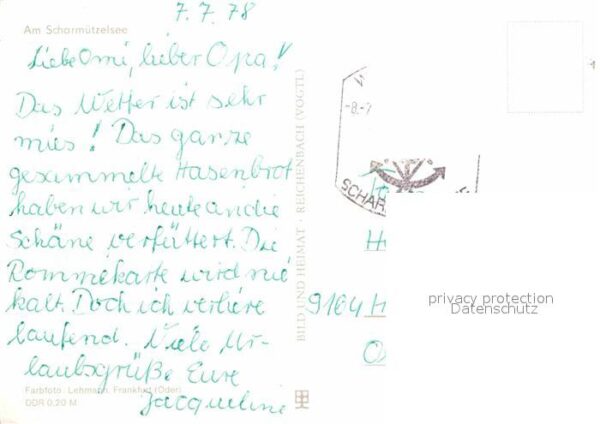 7.7.78
Am Scharmützelsee
Liebe Omi, lieber Opa!
Das Wetter ist sehr
mies! Das ganze
gesammelte Hasenbrot
haben wir heute an die
Schäne verfüttert. Die
Rommékarte wird nie
kalt. Doch ich verliere
laufend. Viele Ur-
laubsgrüße Eure
Jacqueline
Farbfoto: Lehmann, Frankfurt (Oder)
DDR 0,20 M
BILD UND HEIMAT · REICHENBACH (VOGTL)
-8.-7
SCHAR
H
9164 H
privacy protection
Datenschutz